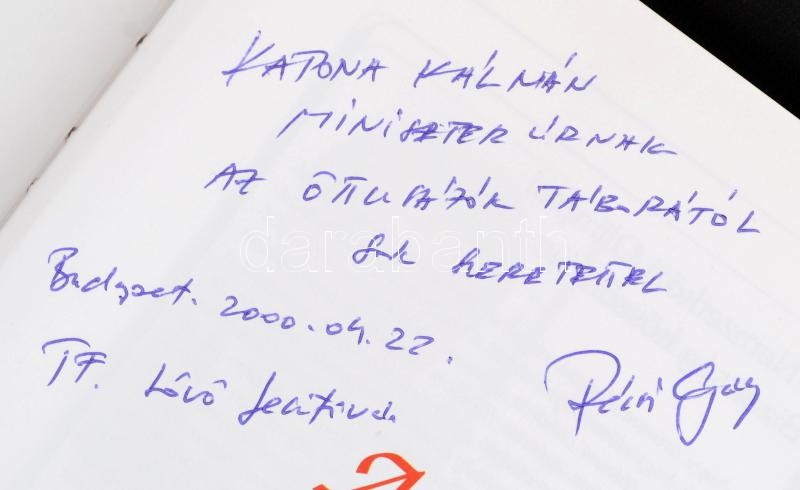 KATONA KÁLMÁN
MINISZTER ÚRNAK
AZ ÖTTUSÁZÓK TÁBORÁTÓL
SOK SZERETETTEL
Budapest. 2000.04.22.
TF. Lövő
darabanth